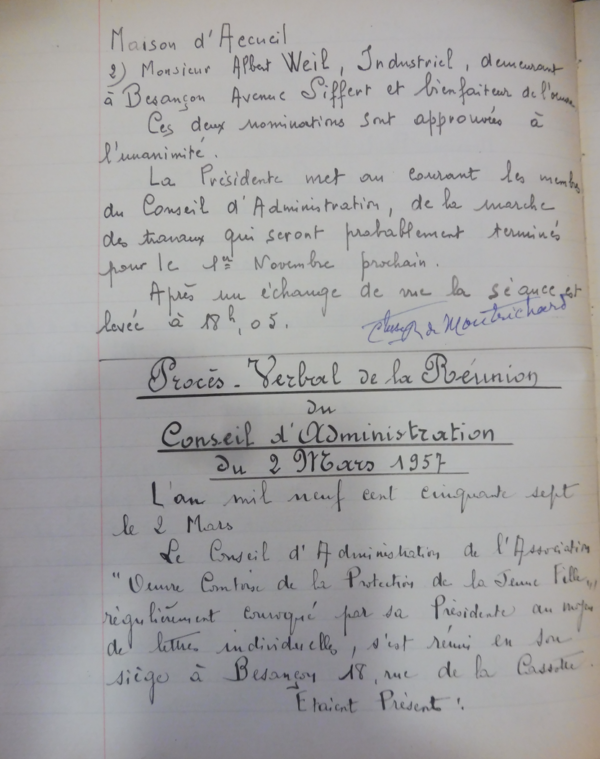 Maison d'Accueil
2) Monsieur Albert Weil, Industriel, demeurant
à Besançon Avenue Siffert et bienfaiteur de l'œuvre
Ces deux nominations sont approuvées à
l'unanimité.
La Présidente met au courant les membres
du Conseil d'Administration, de la marche
des travaux qui seront probablement terminés
pour le 1er Novembre prochain.
Après un échange de vue la séance est
levée à 18h,05.
de Montrichard
Procès-Verbal de la Réunion
du
Conseil d'Administration
du 2 Mars 1957
L'an mil neuf cent cinquante sept
le 2 Mars
Le Conseil d'Administration de l'Association
"Oeuvre Comtoise de la Protection de la Jeune Fille",
régulièrement convoqué par sa Présidente au moyen
de lettres individuelles, s'est réuni en son
siège à Besançon 18, rue de la Cassotte.
Etaient Présents :